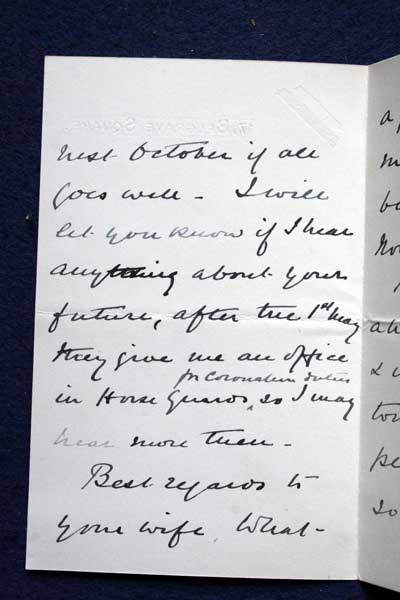 BELGRAVE SQUARE.
next October if all
goes well - I will
let you know if I hear
anything about your
future, after the 1st May
they give me an office
for Coronation duties
in Horse Guards, so I may
hear more then -
Best regards to
your wife. What-
a
m
b
no
a
to
pe
so